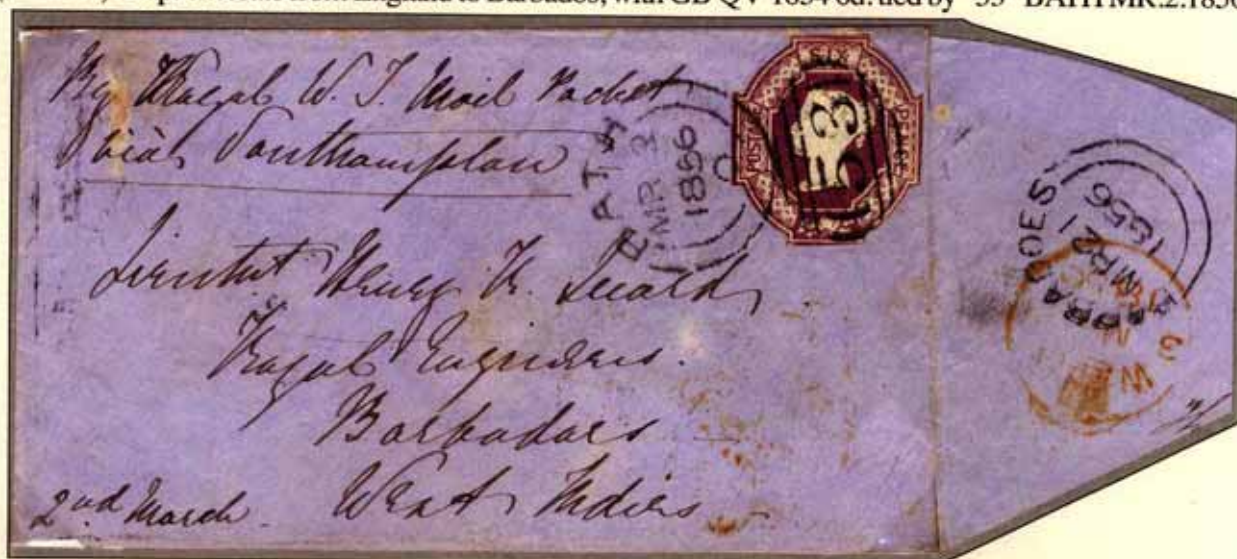 from England to Barbados, with GB QV 1854 6d. tied by "53" BATH MR.2.1856
By Royal W. I. Mail Packet
Viâ Southampton
POSTAGE SIX PENCE
53
BATH
MR 2
1856
C
Lieutnt Henry
Royal Engineers.
Barbadoes
West Indies
2nd March.
BARBADOES
MR 21
1856